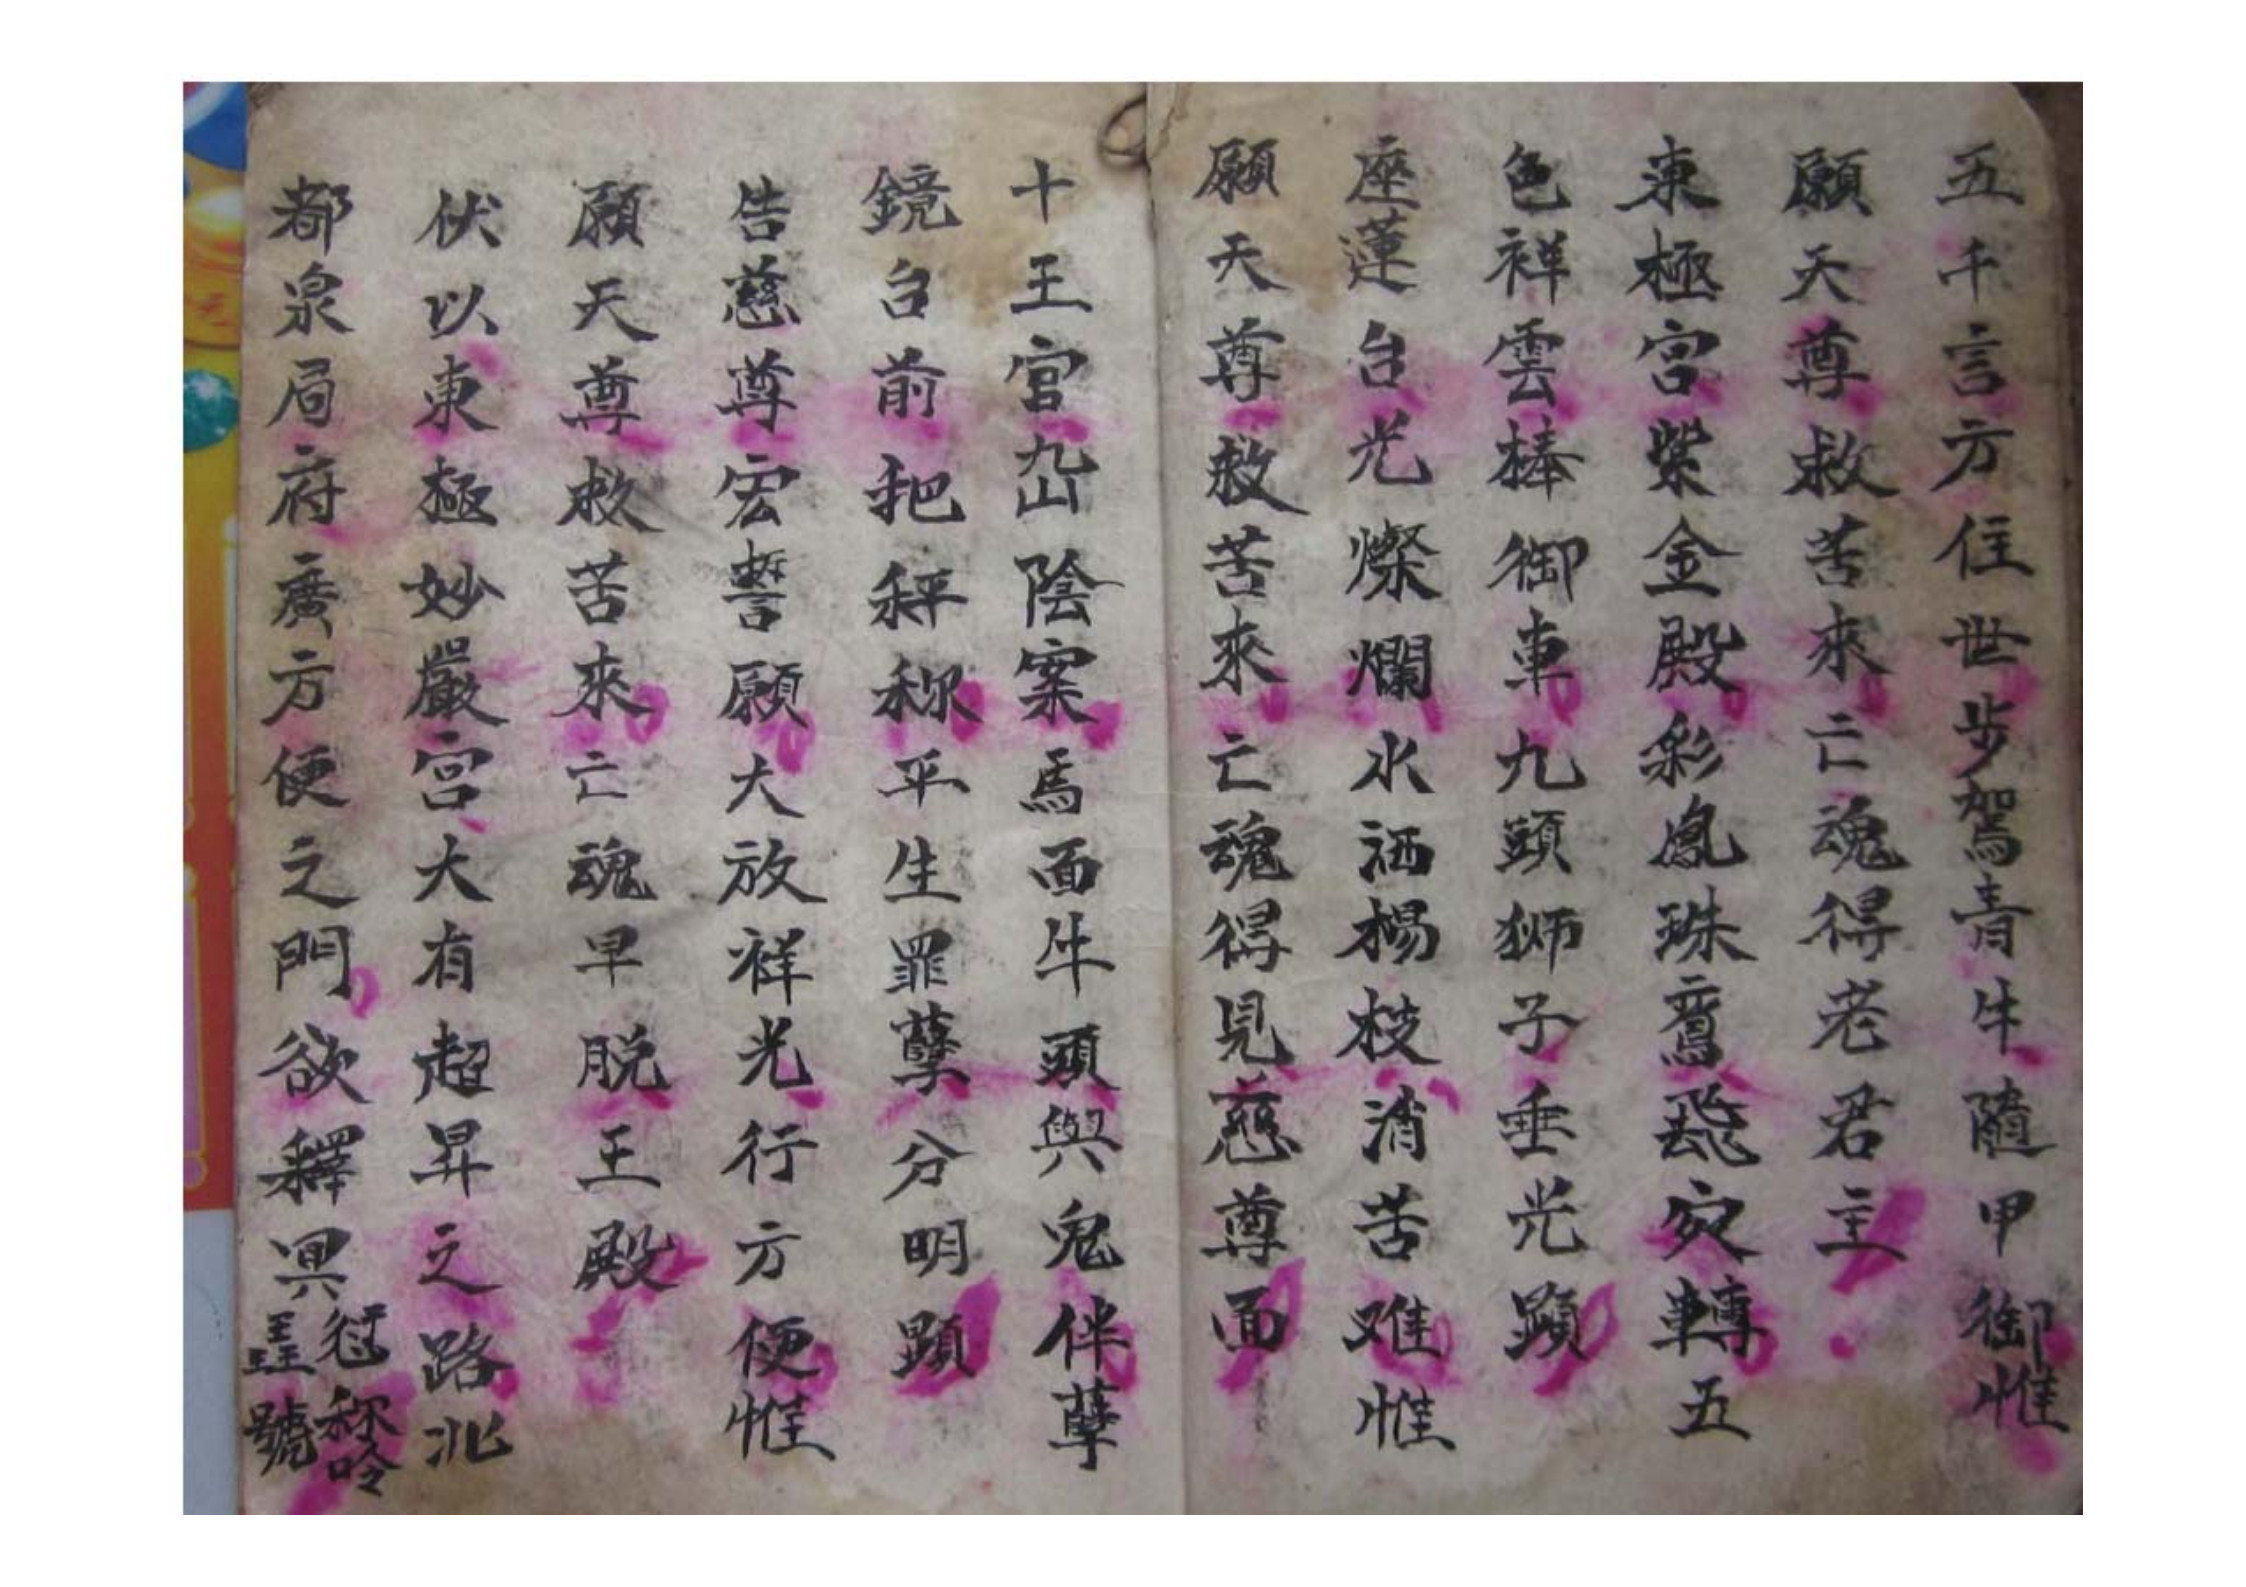 五千言方住世步駕青牛隨甲御惟
願天尊救苦來亡魂得老君主
東極宮紫金殿彩鳳珠鸞飛宛轉五
色祥雲棒御車九頭獅子垂光顕
座蓮台光燦爛水洒楊枝消苦难惟
願天尊救苦來亡魂得見慈尊面
十王宮九幽陰案馬面牛頭與鬼伴孽
鏡台前把秤称平生罪孽分明顕
告慈尊宏誓願大放祥光行方便惟
願天尊救苦來亡魂早脱王殿
伏以東極妙嚴宮大有超昇之路
都泉局府廣方便之門欲釋冥愆称
號